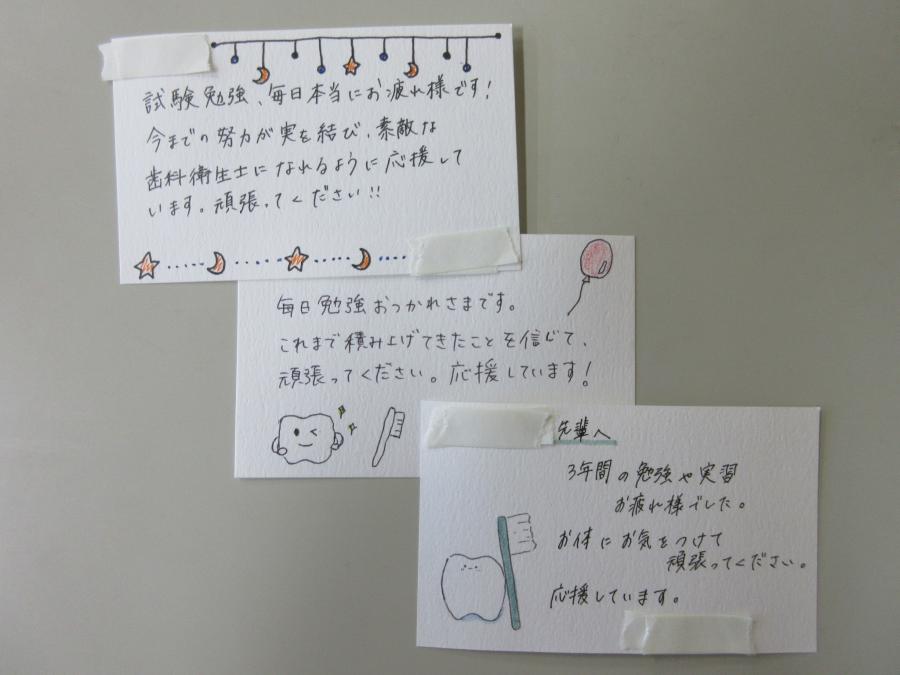 試験勉強、毎日本当にお疲れ様です!
今までの努力が実を結び、素敵な
歯科衛生士になれるように応援して
います。頑張ってください!!
毎日勉強おつかれさまです。
これまで積み上げてきたことを信じて、
頑張ってください。応援しています!
先輩へ
3年間の勉強や実習
お疲れ様でした。
お体にお気をつけて
頑張ってください。
応援しています。